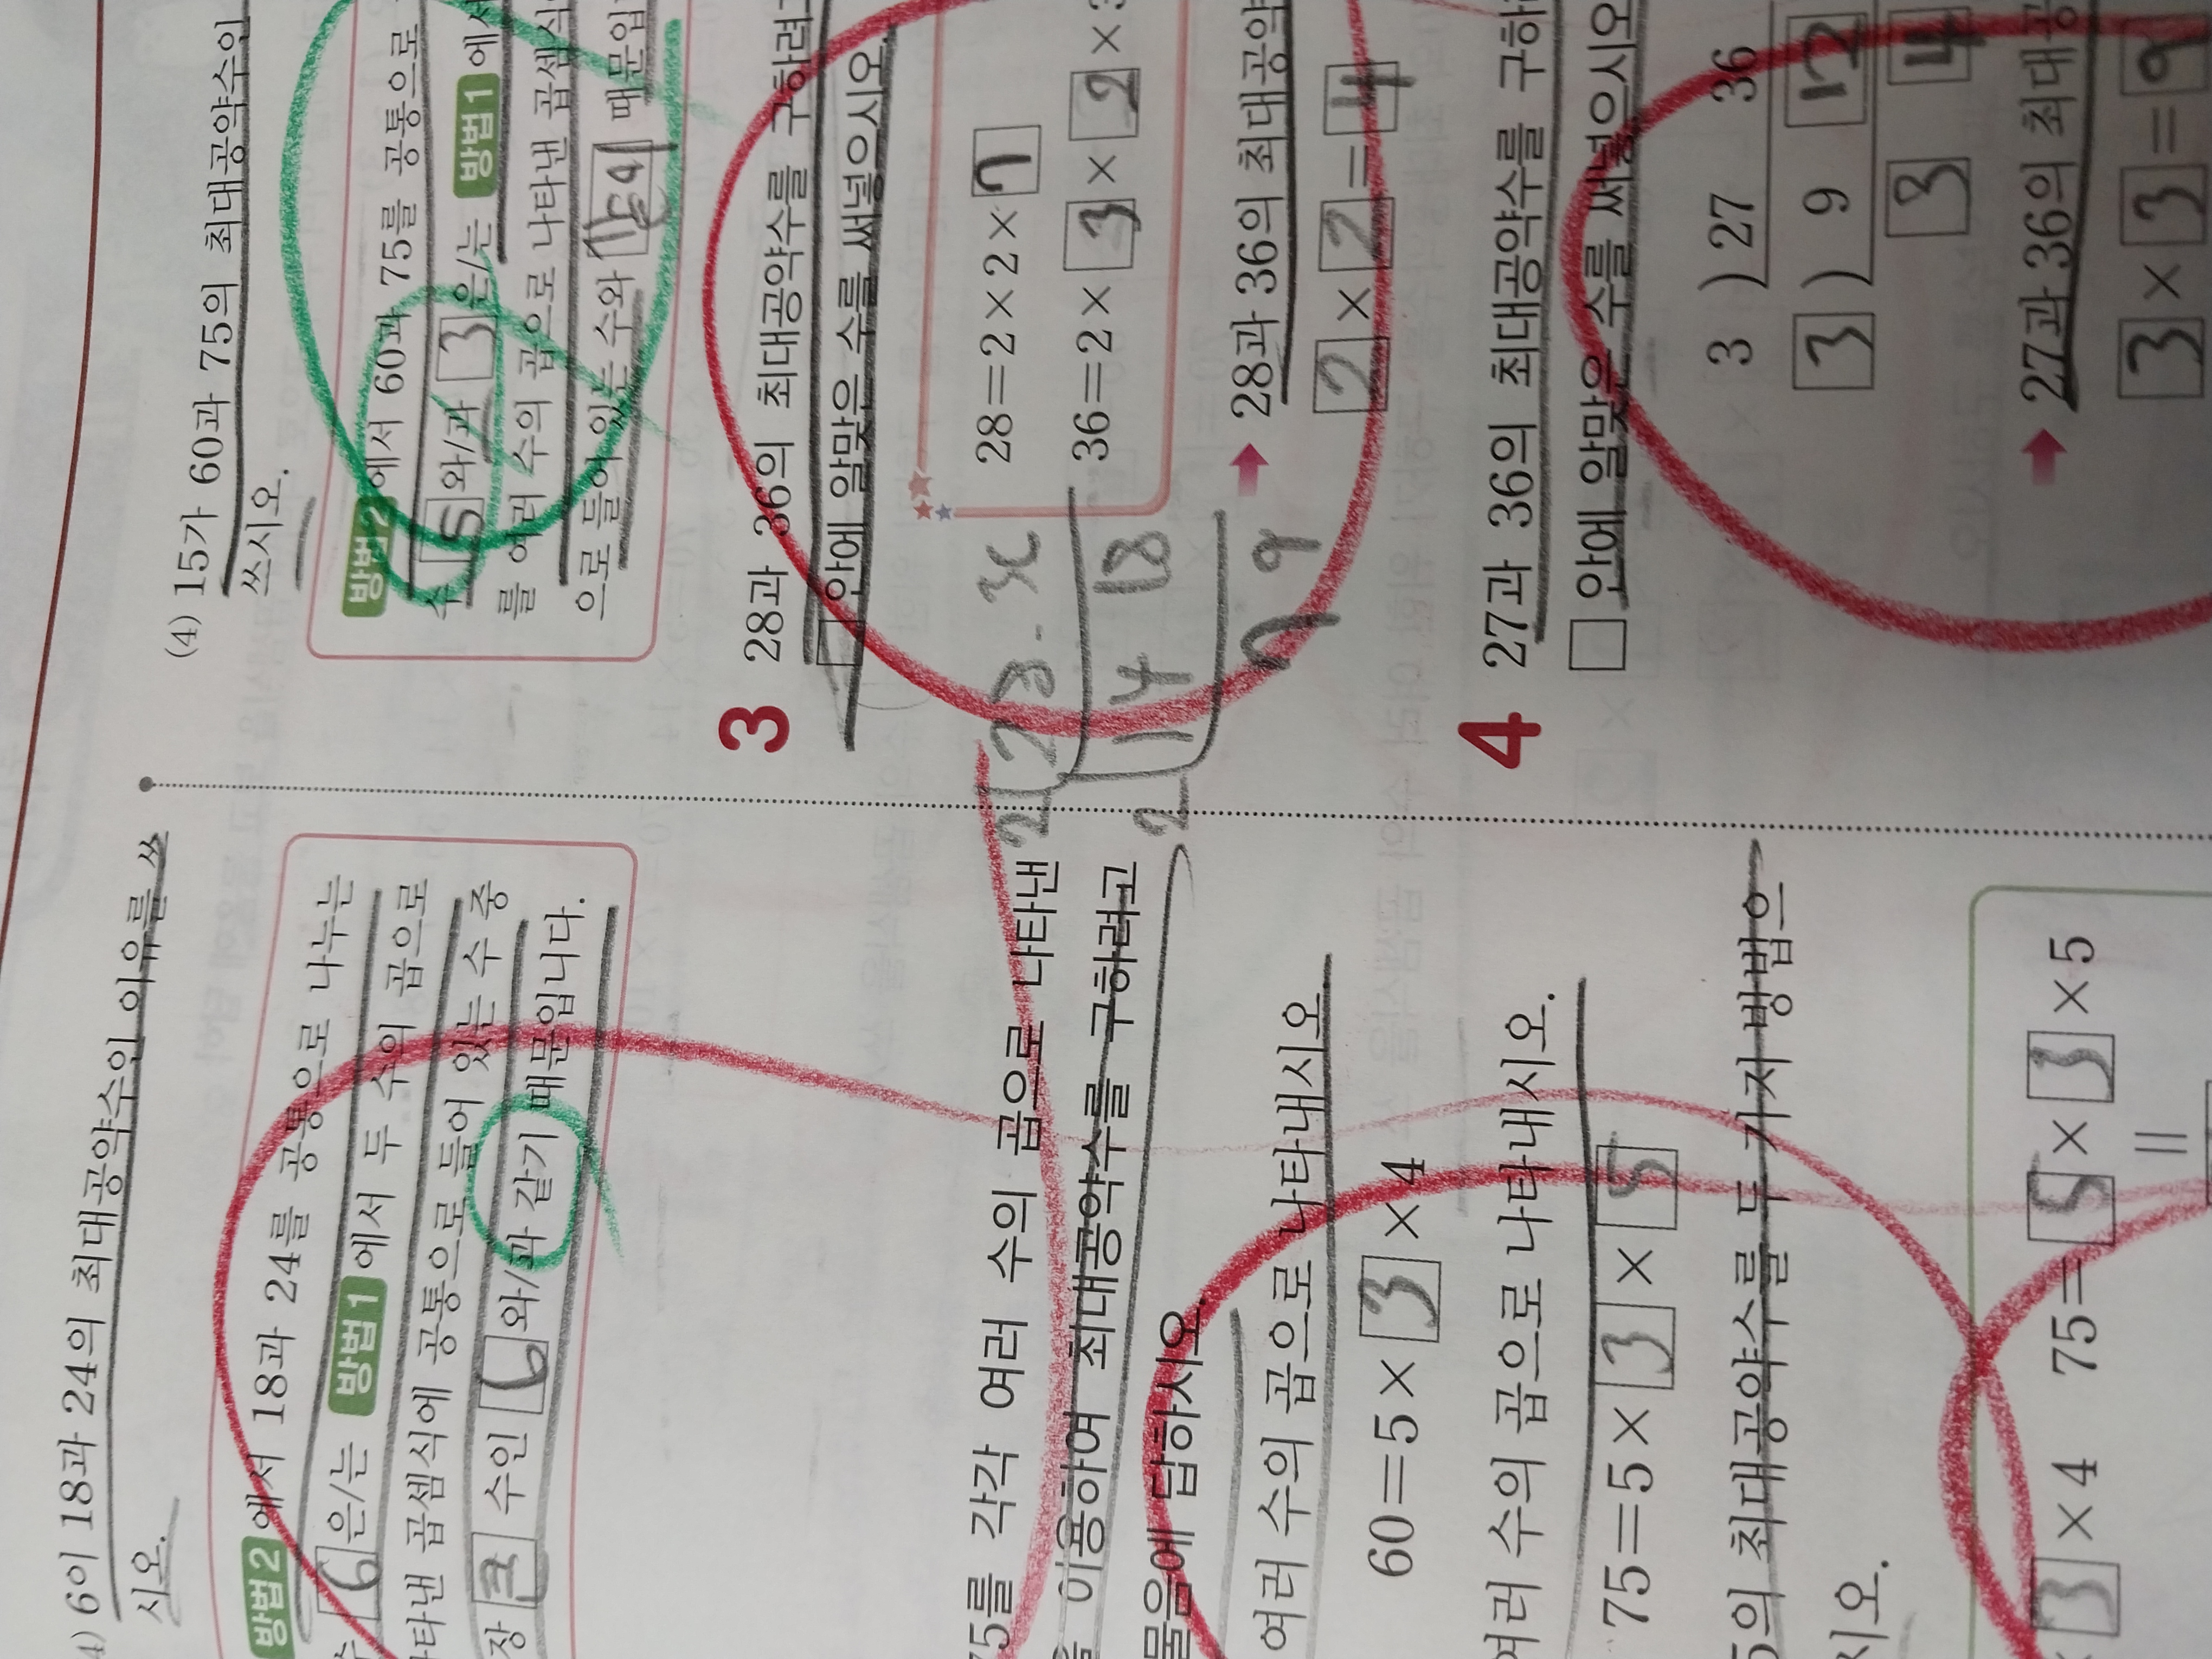 4) 6이 18과 24의 최대공약수인 이유를 쓰
시오.
방법2 에서 18과 24를 공통으로 나누는
수 6 은/는 방법1 에서 두 수의 곱으로
나타낸 곱셈식에 공통으로 들어 있는 수 중
장 큰 수인 6 와/과 같기 때문입니다.
75를 각각 여러 수의 곱으로 나타낸
을 이용하여 최대공약수를 구하려고
물음에 답하시오.
여러 수의 곱으로 나타내시오.
60=5×3×4
여러 수의 곱으로 나타내시오.
75=5×3×5
5의 최대공약수를 두 가지 방법으
시오.
×3×4 75=5×3×5
(4) 15가 60과 75의 최대공약수인
쓰시오.
방법2 에서 60과 75를 공통으로
수 5 와/과 3 은/는 방법1 에서
를 여러 수의 곱으로 나타낸 곱셈식
으로 들어 있는 수와 때문입
3 28과 36의 최대공약수를 구하려
□ 안에 알맞은 수를 써넣으시오.
28=2×2×7
36=2×3×2×3
28과 36의 최대공약
2×2=4
2 28 36
2 14 18
7 9
4 27과 36의 최대공약수를 구하
□ 안에 알맞은 수를 써넣으시오
3 ) 27 36
3 ) 9 12
3 4
27과 36의 최대공
3×3=9